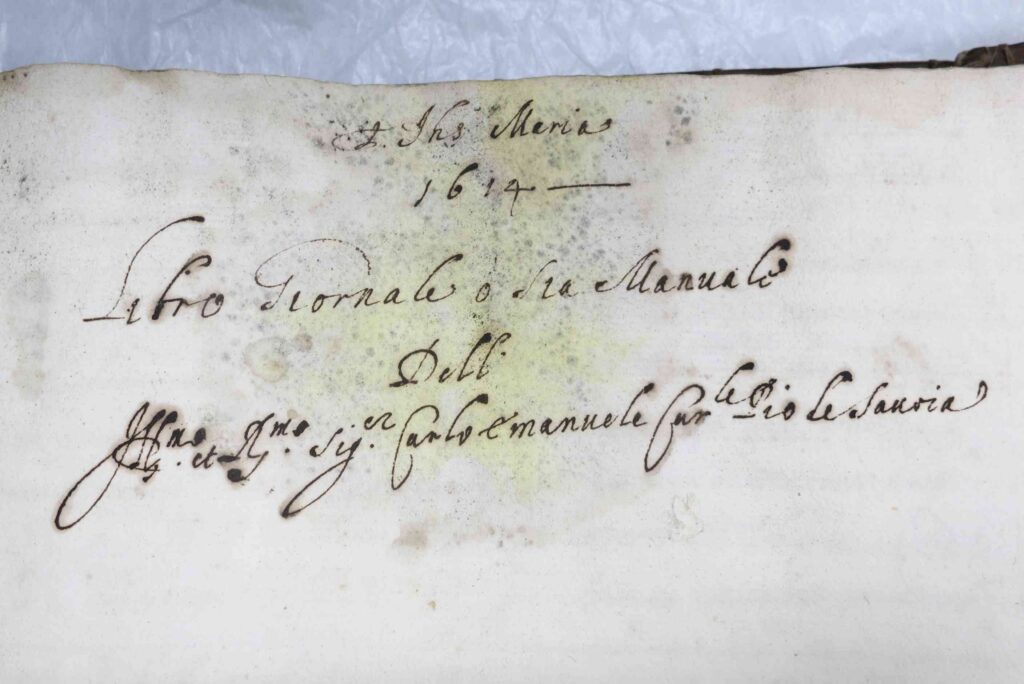 ✝. Jhs Maria
1614
Libro Giornale ó Sia Manuale
Dell
Ill.mo et R.mo Sig.er Carlo Emanuele Car.le Pio de Sauoia